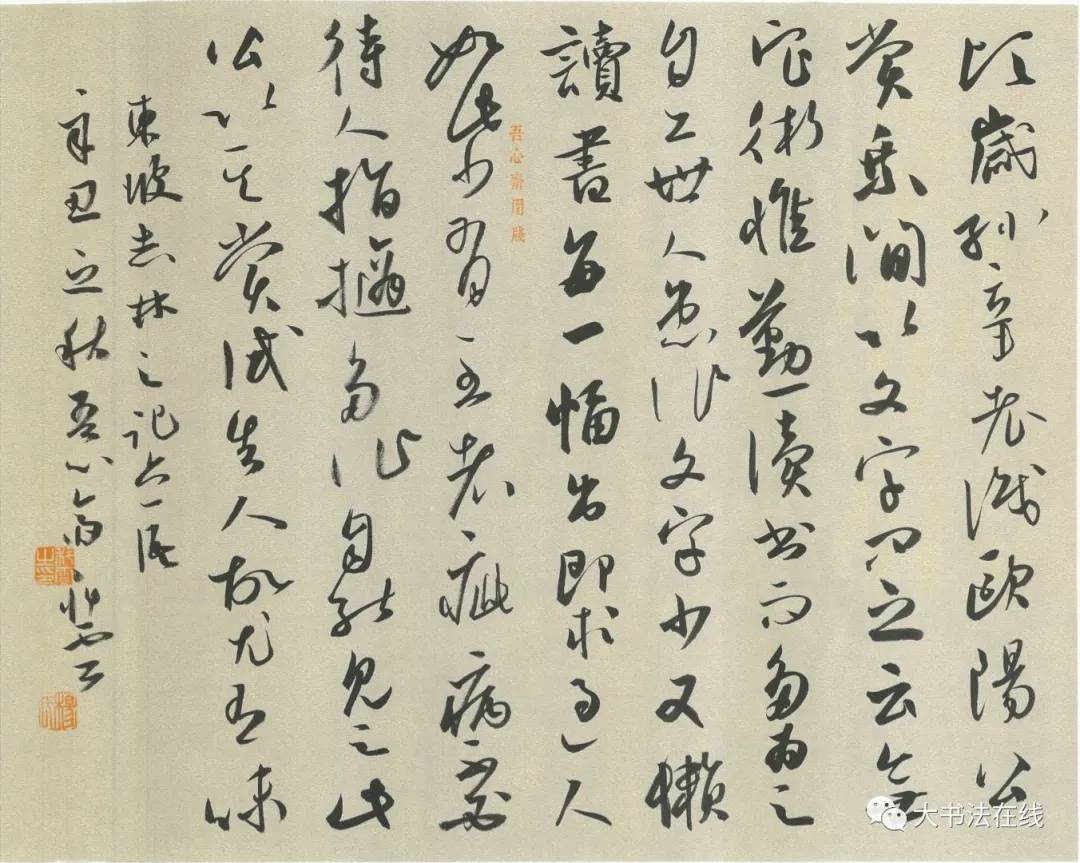 頃歲孫莘老識歐陽公
嘗乘間以文字問之云無
它術惟勤讀書而多為之
自工世人患作文字少又懶
讀書每一幅出即求過人
如此少有至者疵病不必
待人指擿多作自能見之此
公以其嘗試告人故尤有味
東坡志林之記六一語
辛丑之秋吾心齋
吾心齋用牋
大书法在线